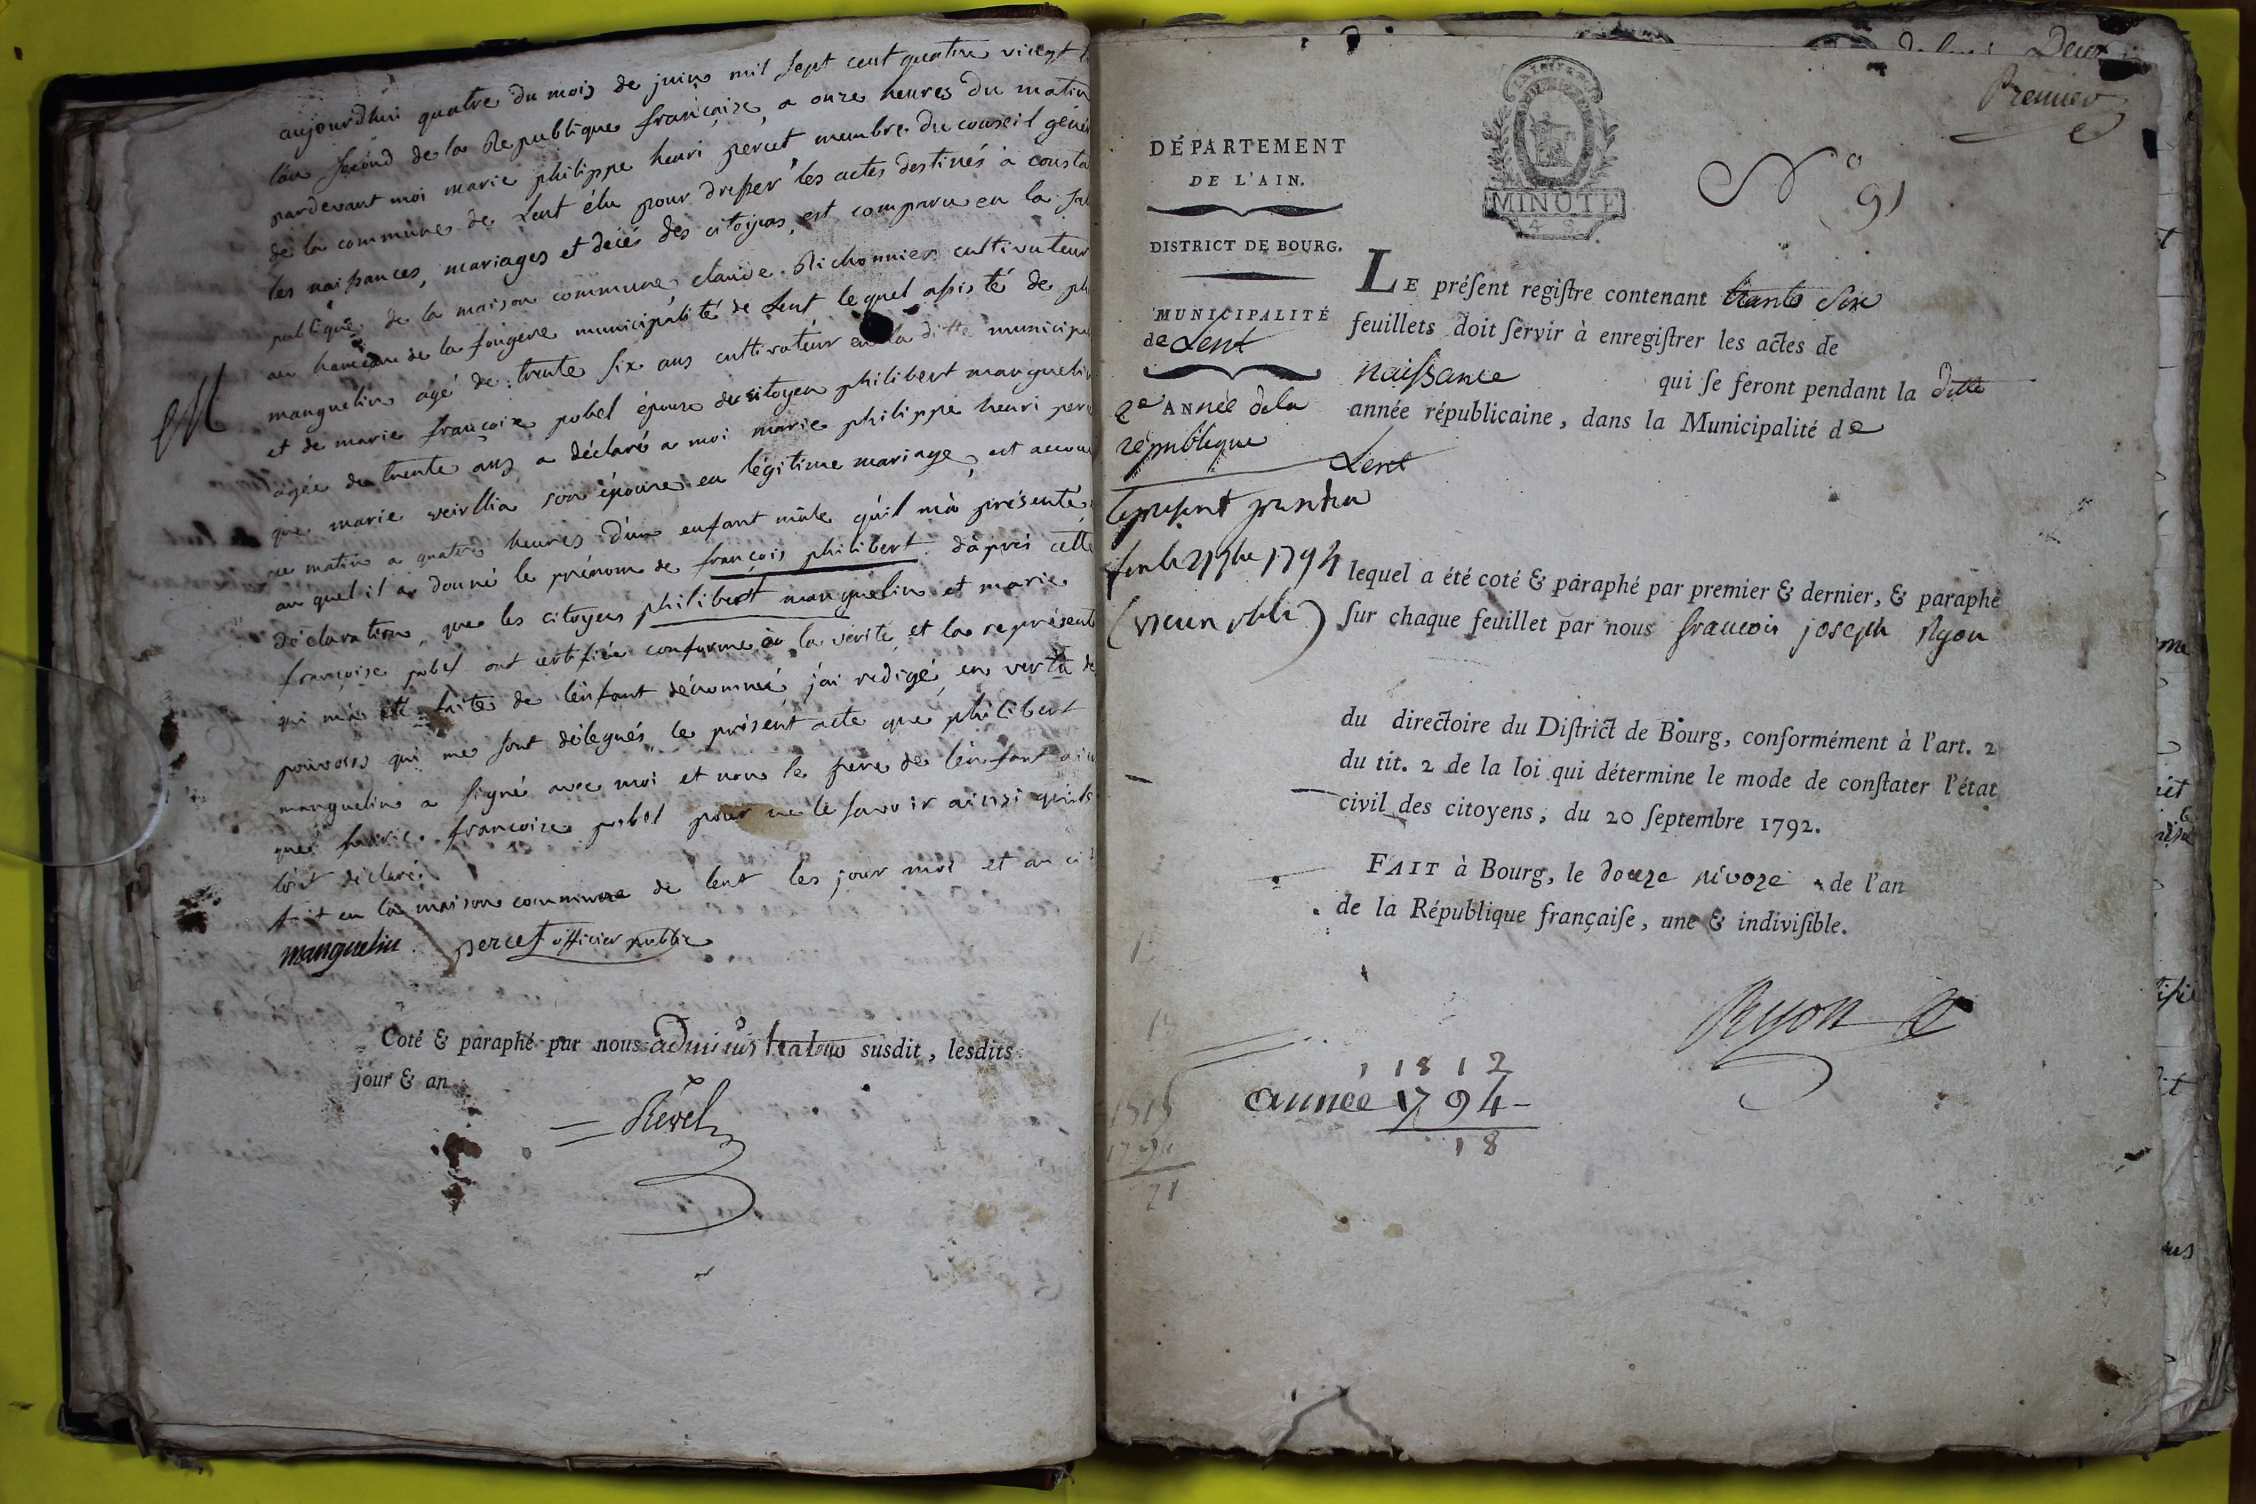 aujourdhui quatre du mois de juin mil sept cent quatre vingt
l'an second de la Republique française, a onze heures du matin
pardevant moi marie philippe henri percet membre du conseil génér
de la commune de Lent élu pour dresser les actes destinés à consta
les naissances, mariages et décés des citoyens, est comparu en la sal
publique de la maison commune, claude Richonnier cultivateur
au hameau de la fougere municipalité de Lent lequel assisté de phi
manguelin agé de trente six ans cultivateur en la ditte municipal
et de marie françoise pobel épouse du citoyen philibert manguelin
agée de trente ans a déclaré a moi marie philippe henri perc
que marie son épouse en légitime mariage, est accou
ce matin a quatre heures d'un enfant mâle qu'il m'a présenté
au quel il a donné le prénom de françois philibert. d'après cette
déclaration, que les citoyens philibert manguelin et marie
françoise pobel ont certifiée conforme à la vérité, et la représent
qui m'a été faite de l'enfant dénommé, j'ai redigé, en vertu de
pouvoirs qui me sont délegués, le présent acte que philibert
manguelin a signé avec moi et non le pere de l'enfant ain
que marie françoise pobel pour ne le savoir ainsi qu'ils
l'ont déclaré.
fait en la maison commune de lent les jour moi et an ci
manguelin percet officier public
Coté & paraphé par nous administrateur susdit, lesdits
jour & an
Révél
Deux
Premier
MINUTE
N° 91
DÉPARTEMENT
DE L'AIN.
DISTRICT DE BOURG.
MUNICIPALITÉ
de Lent
2e ANnée dela
république
LE préſent regiſtre contenant trante six
feuillets doit ſervir à enregiſtrer les actes de
naissance qui ſe feront pendant la ditte
année républicaine, dans la Municipalité de
Lent
1794
lequel a été coté & paraphé par premier & dernier, & paraphé
ſur chaque feuillet par nous francois joseph Ryon
du directoire du Diſtrict de Bourg, conformément à l'art. 2
du tit. 2 de la loi qui détermine le mode de conſtater l'état
civil des citoyens, du 20 ſeptembre 1792.
FAIT à Bourg, le douze nivoze de l'an
de la République françaiſe, une & indiviſible.
Ryon
1812
année 1794
18